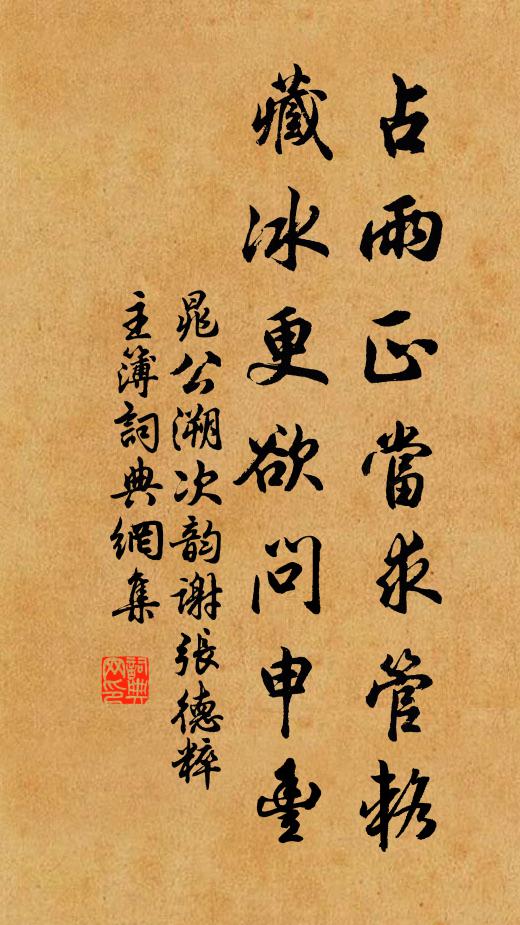 占雨正當求管輅
藏冰更欲問申豐
晁公溯次韵謝張德粹
主簿詞典網集
詞典網印